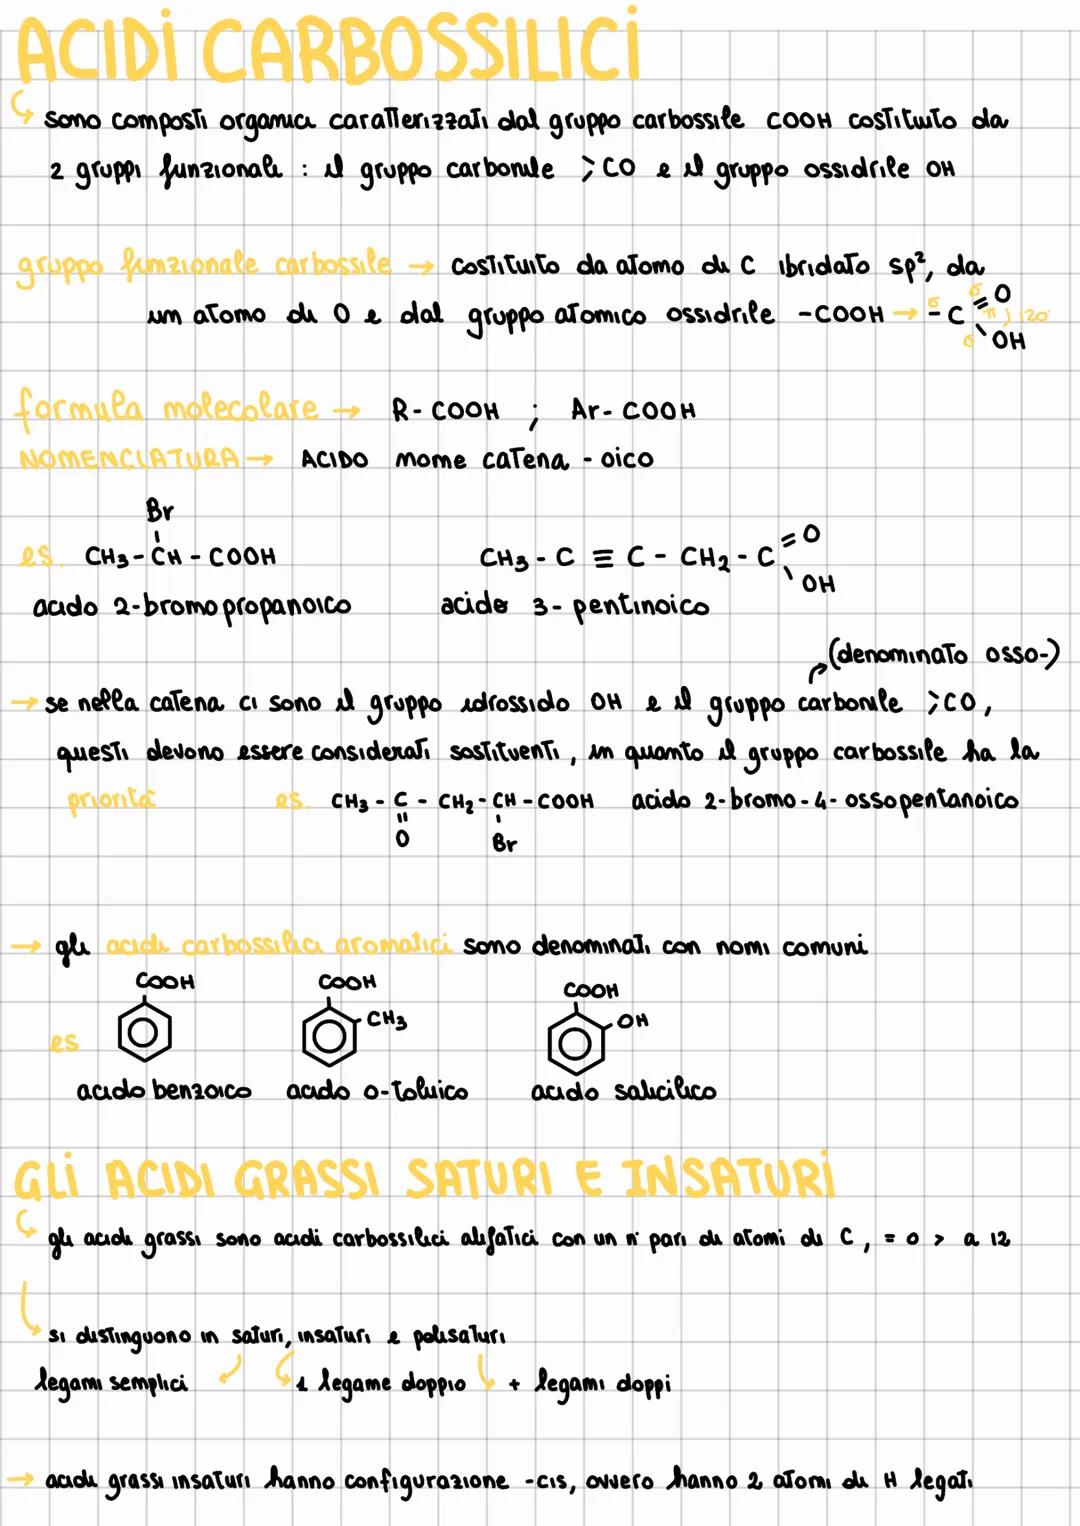 ACIDI CARBOSSILICI
sono composti organici caratterizzati dal gruppo carbossile COOH costituito da
2 gruppi funzionali : il gruppo carbonile >CO e il gruppo ossidrile OH
gruppo funzionale carbossile → costituito da atomo di C ibridato sp², da
un atomo di O e dal gruppo atomico ossidrile -COOH → σ -C σ =O π ) 120° σ OH
formula molecolare → R-COOH ; Ar-COOH
NOMENCLATURA → ACIDO nome catena - oico
Br
es. CH3 - CH - COOH CH3 - C ≡ C - CH2 - C =O
OH
acido 2-bromopropanoico acido 3-pentinoico
(denominato osso-)
→ se nella catena ci sono il gruppo idrossido OH e il gruppo carbonile >CO,
questi devono essere considerati sostituenti, in quanto il gruppo carbossile ha la
priorità es. CH3 - C - CH2 - CH - COOH acido 2-bromo-4-ossopentanoico
O Br
→ gli acidi carbossilici aromatici sono denominati con nomi comuni
COOH COOH COOH
CH3 OH
es
acido benzoico acido o-toluico acido salicilico
GLI ACIDI GRASSI SATURI E INSATURI
gli acidi grassi sono acidi carbossilici alifatici con un n° pari di atomi di C, = o > a 12
si distinguono in saturi, insaturi e polisaturi
legami semplici 1 legame doppio + legami doppi
→ acidi grassi insaturi hanno configurazione -cis, ovvero hanno 2 atomi di H legati